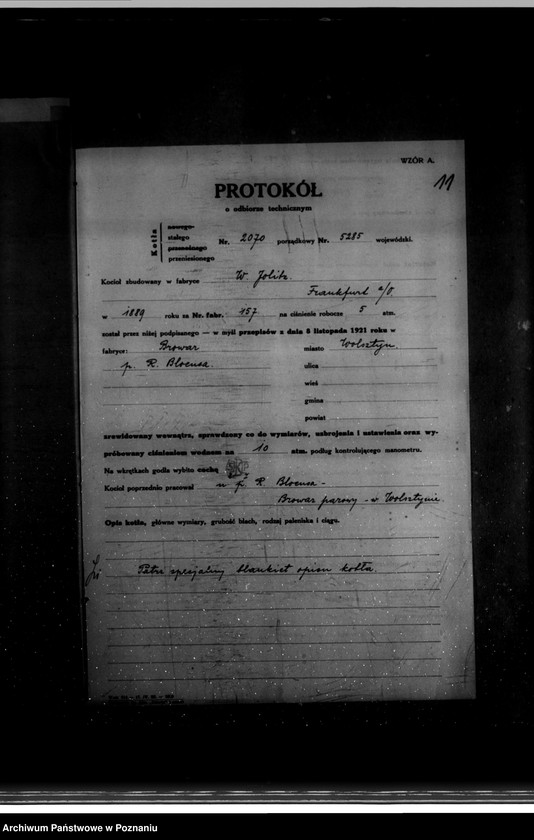 WZÓR A.
11
PROTOKÓŁ
o odbiorze technicznym
Kotła
nowego
stałego
przenośnego
przeniesionego
Nr. 2070 porządkowy Nr. 5285 wojewódzki.
Kocioł zbudowany w fabryce W. Jolitz
Frankfurd a/O.
w 1889 roku za Nr. fabr. 157 na ciśnienie robocze 5 atm.
został przez niżej podpisanego — w myśl przepisów z dnia 8 listopada 1921 roku w
fabryce: Browar miasto Wolsztyn.
p. R. Blocusa. ulica
wieś
gmina
powiat
zrewidowany wewnątrz, sprawdzony co do wymiarów, uzbrojenia i ustawienia oraz wy-
próbowany ciśnieniem wodnem na 10 atm. podług kontrolującego manometru.
Na wkrętkach godła wybito cechę
Kocioł poprzednio pracował u p. R Blocusa -
Browar parowy - w Wolsztynie
Opis kotła, główne wymiary, grubość blach, rodzaj paleniska i ciągu.
Patrz specjalny blankiet opisu kotła.
Archiwum Państwowe w Poznaniu